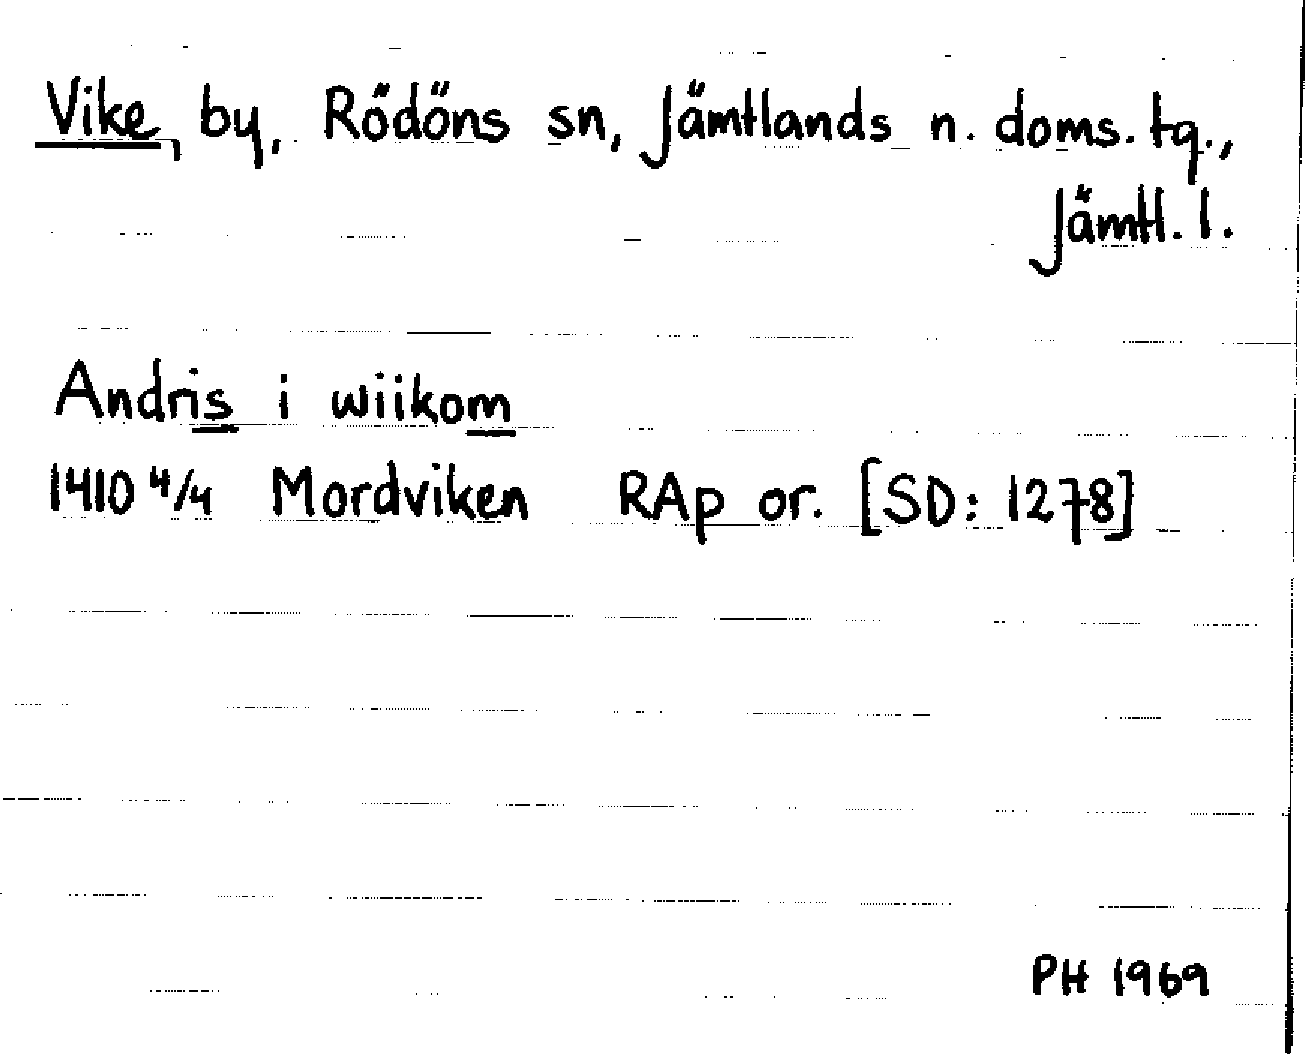 Vike, by, Rödöns sn, Jämtlands n. doms. tg.,
Jämtl. l.
Andris i wiikom
1410 4/4 Mordviken RAp or. [SD: 1278]
PH 1969